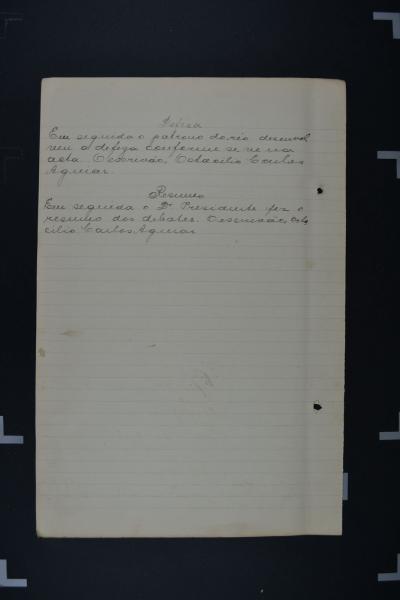 Defeza
Em seguida o patrono do réo desenvol
veu a defeza conforme se ve na
acta. O escrivão, Octacilio Carlos
Aguiar.
Resumo
Em seguida o Dr Presidente fez o
resumo dos debates. O escrivão, Octa
cilio Carlos Aguiar